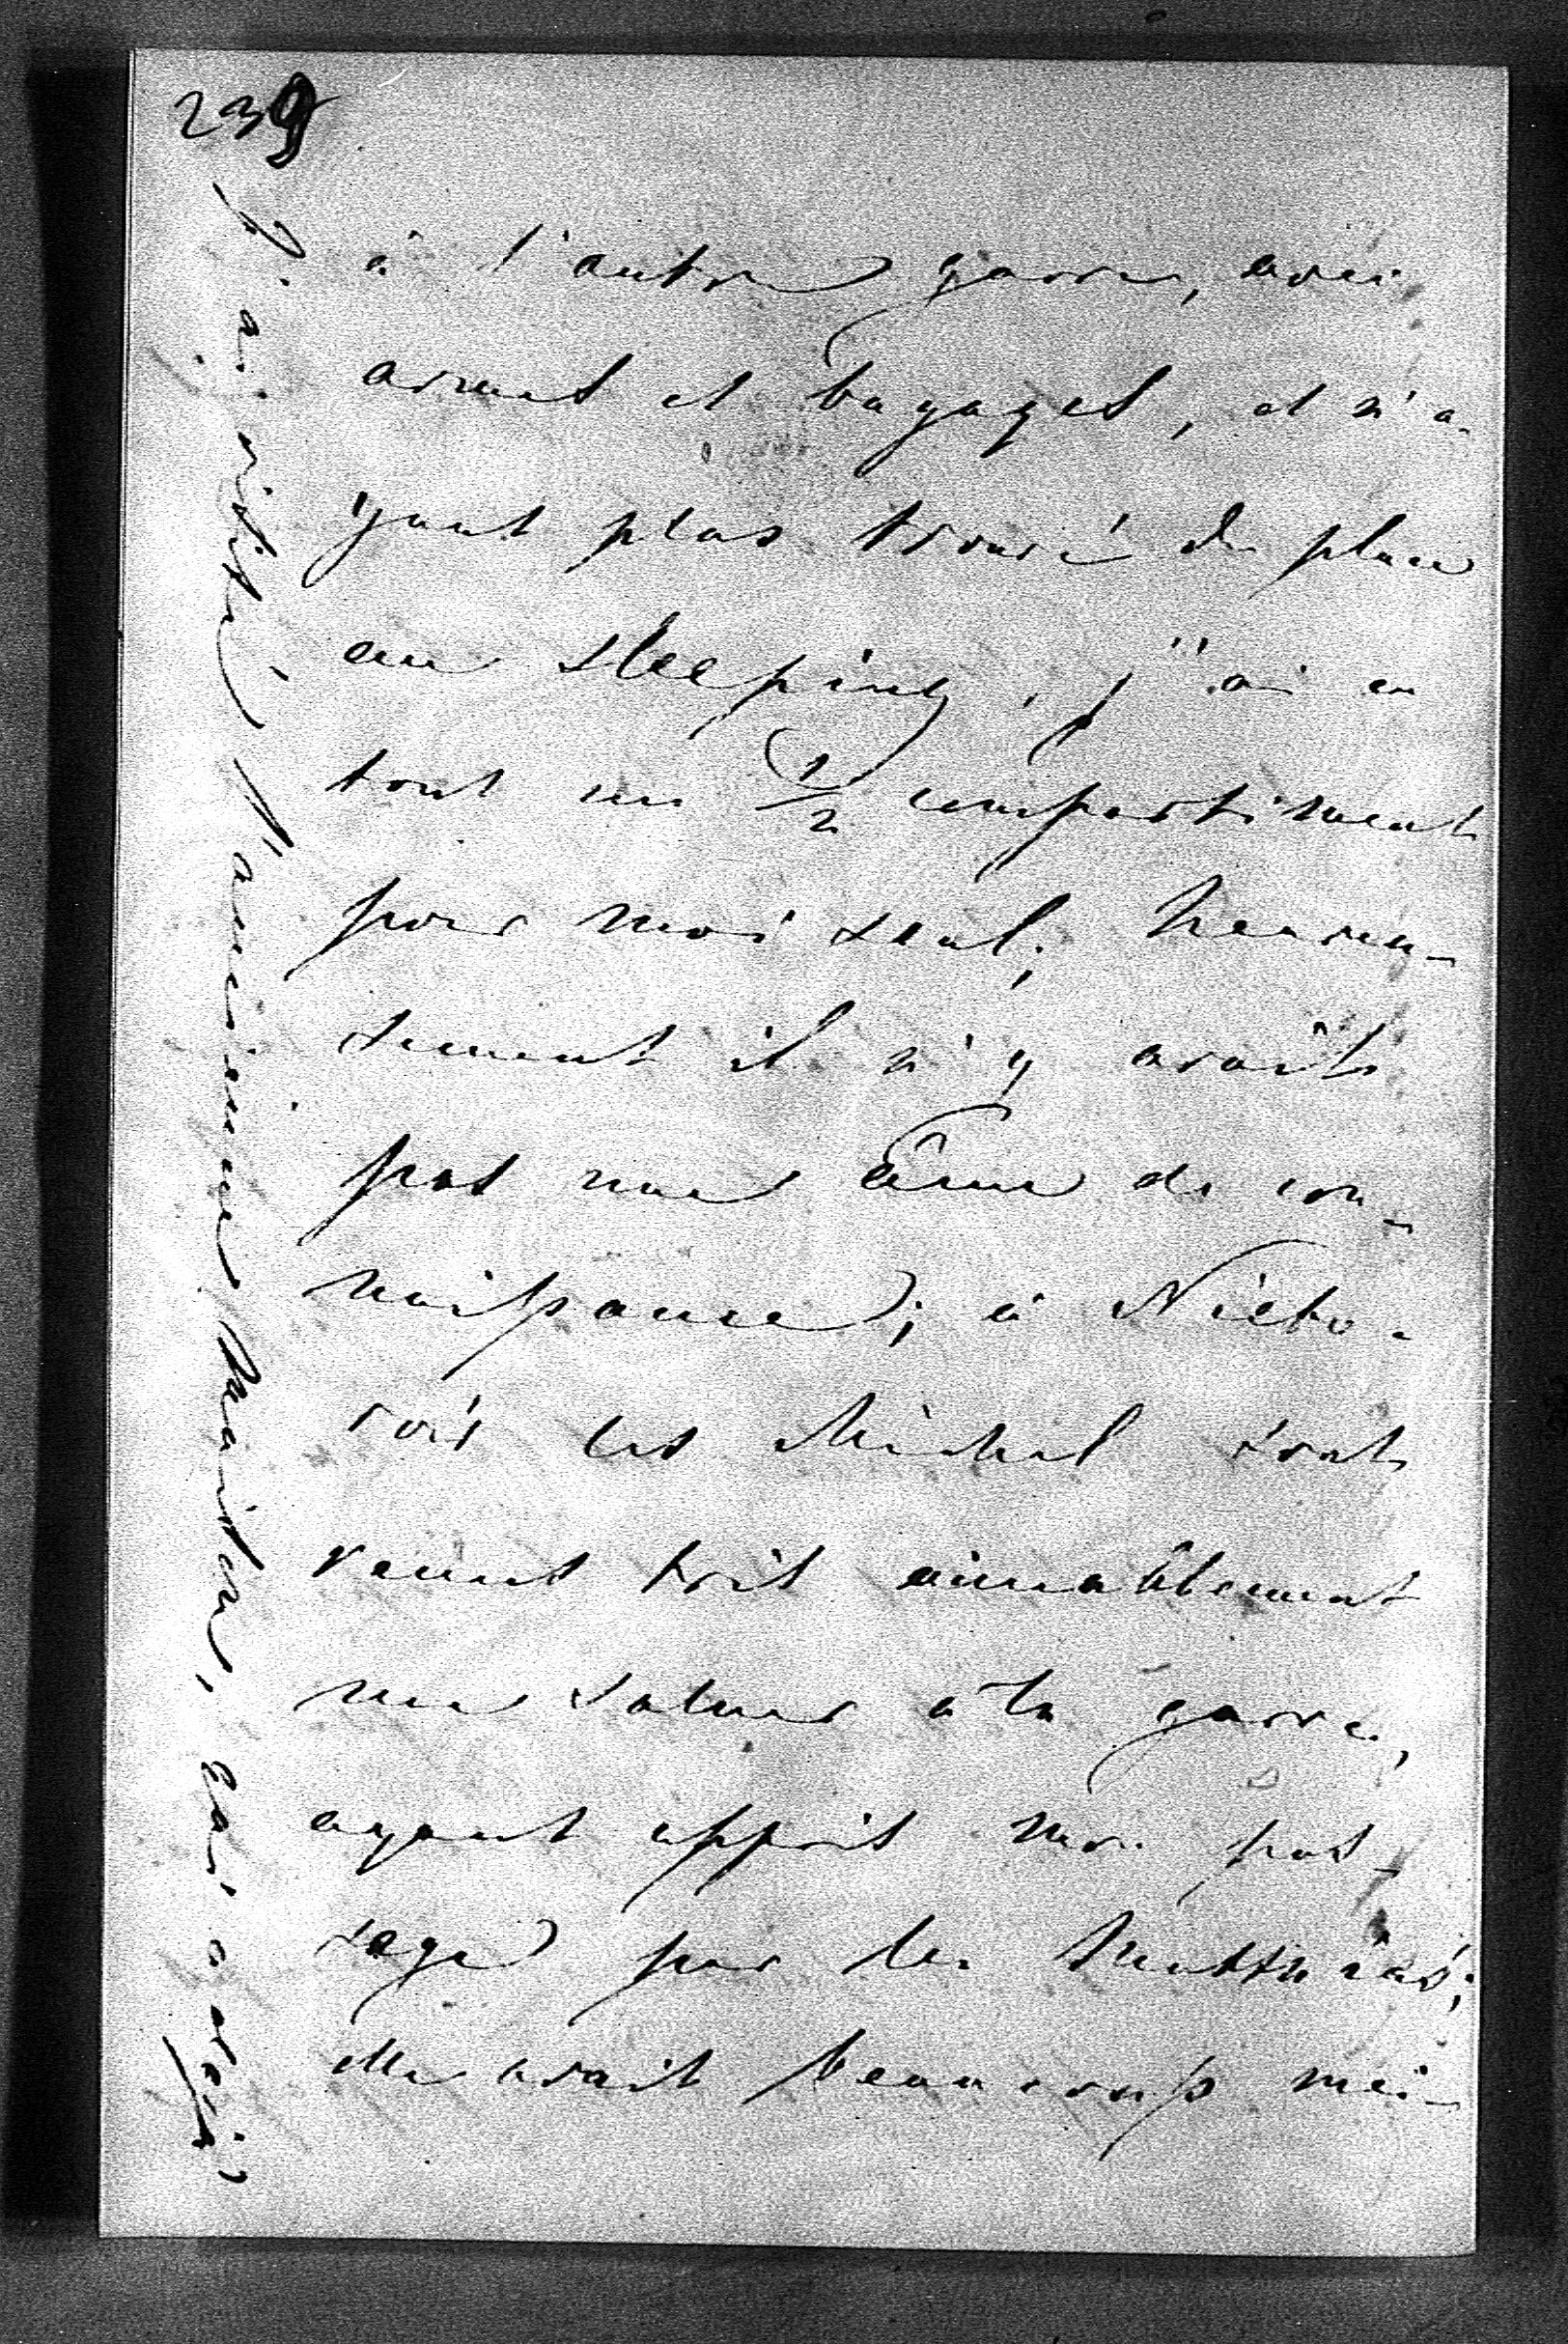 239
à l'autre garre, avec
armes et bagages, et n'a-
yant plus trouvé de place
au sleeping, j'ai eu
tout un 1/2 compartiment
pour moi seul; heureu-
sement il n'y avait
pas une âme de con-
naissance; à Nicto-
rois les Michel sont
venus très aimablement
me saluer à la garre,
ayant appris mon pas-
sage par les
elle avait beaucoup mei-
J'ai visité l'ancienne maison, qui a